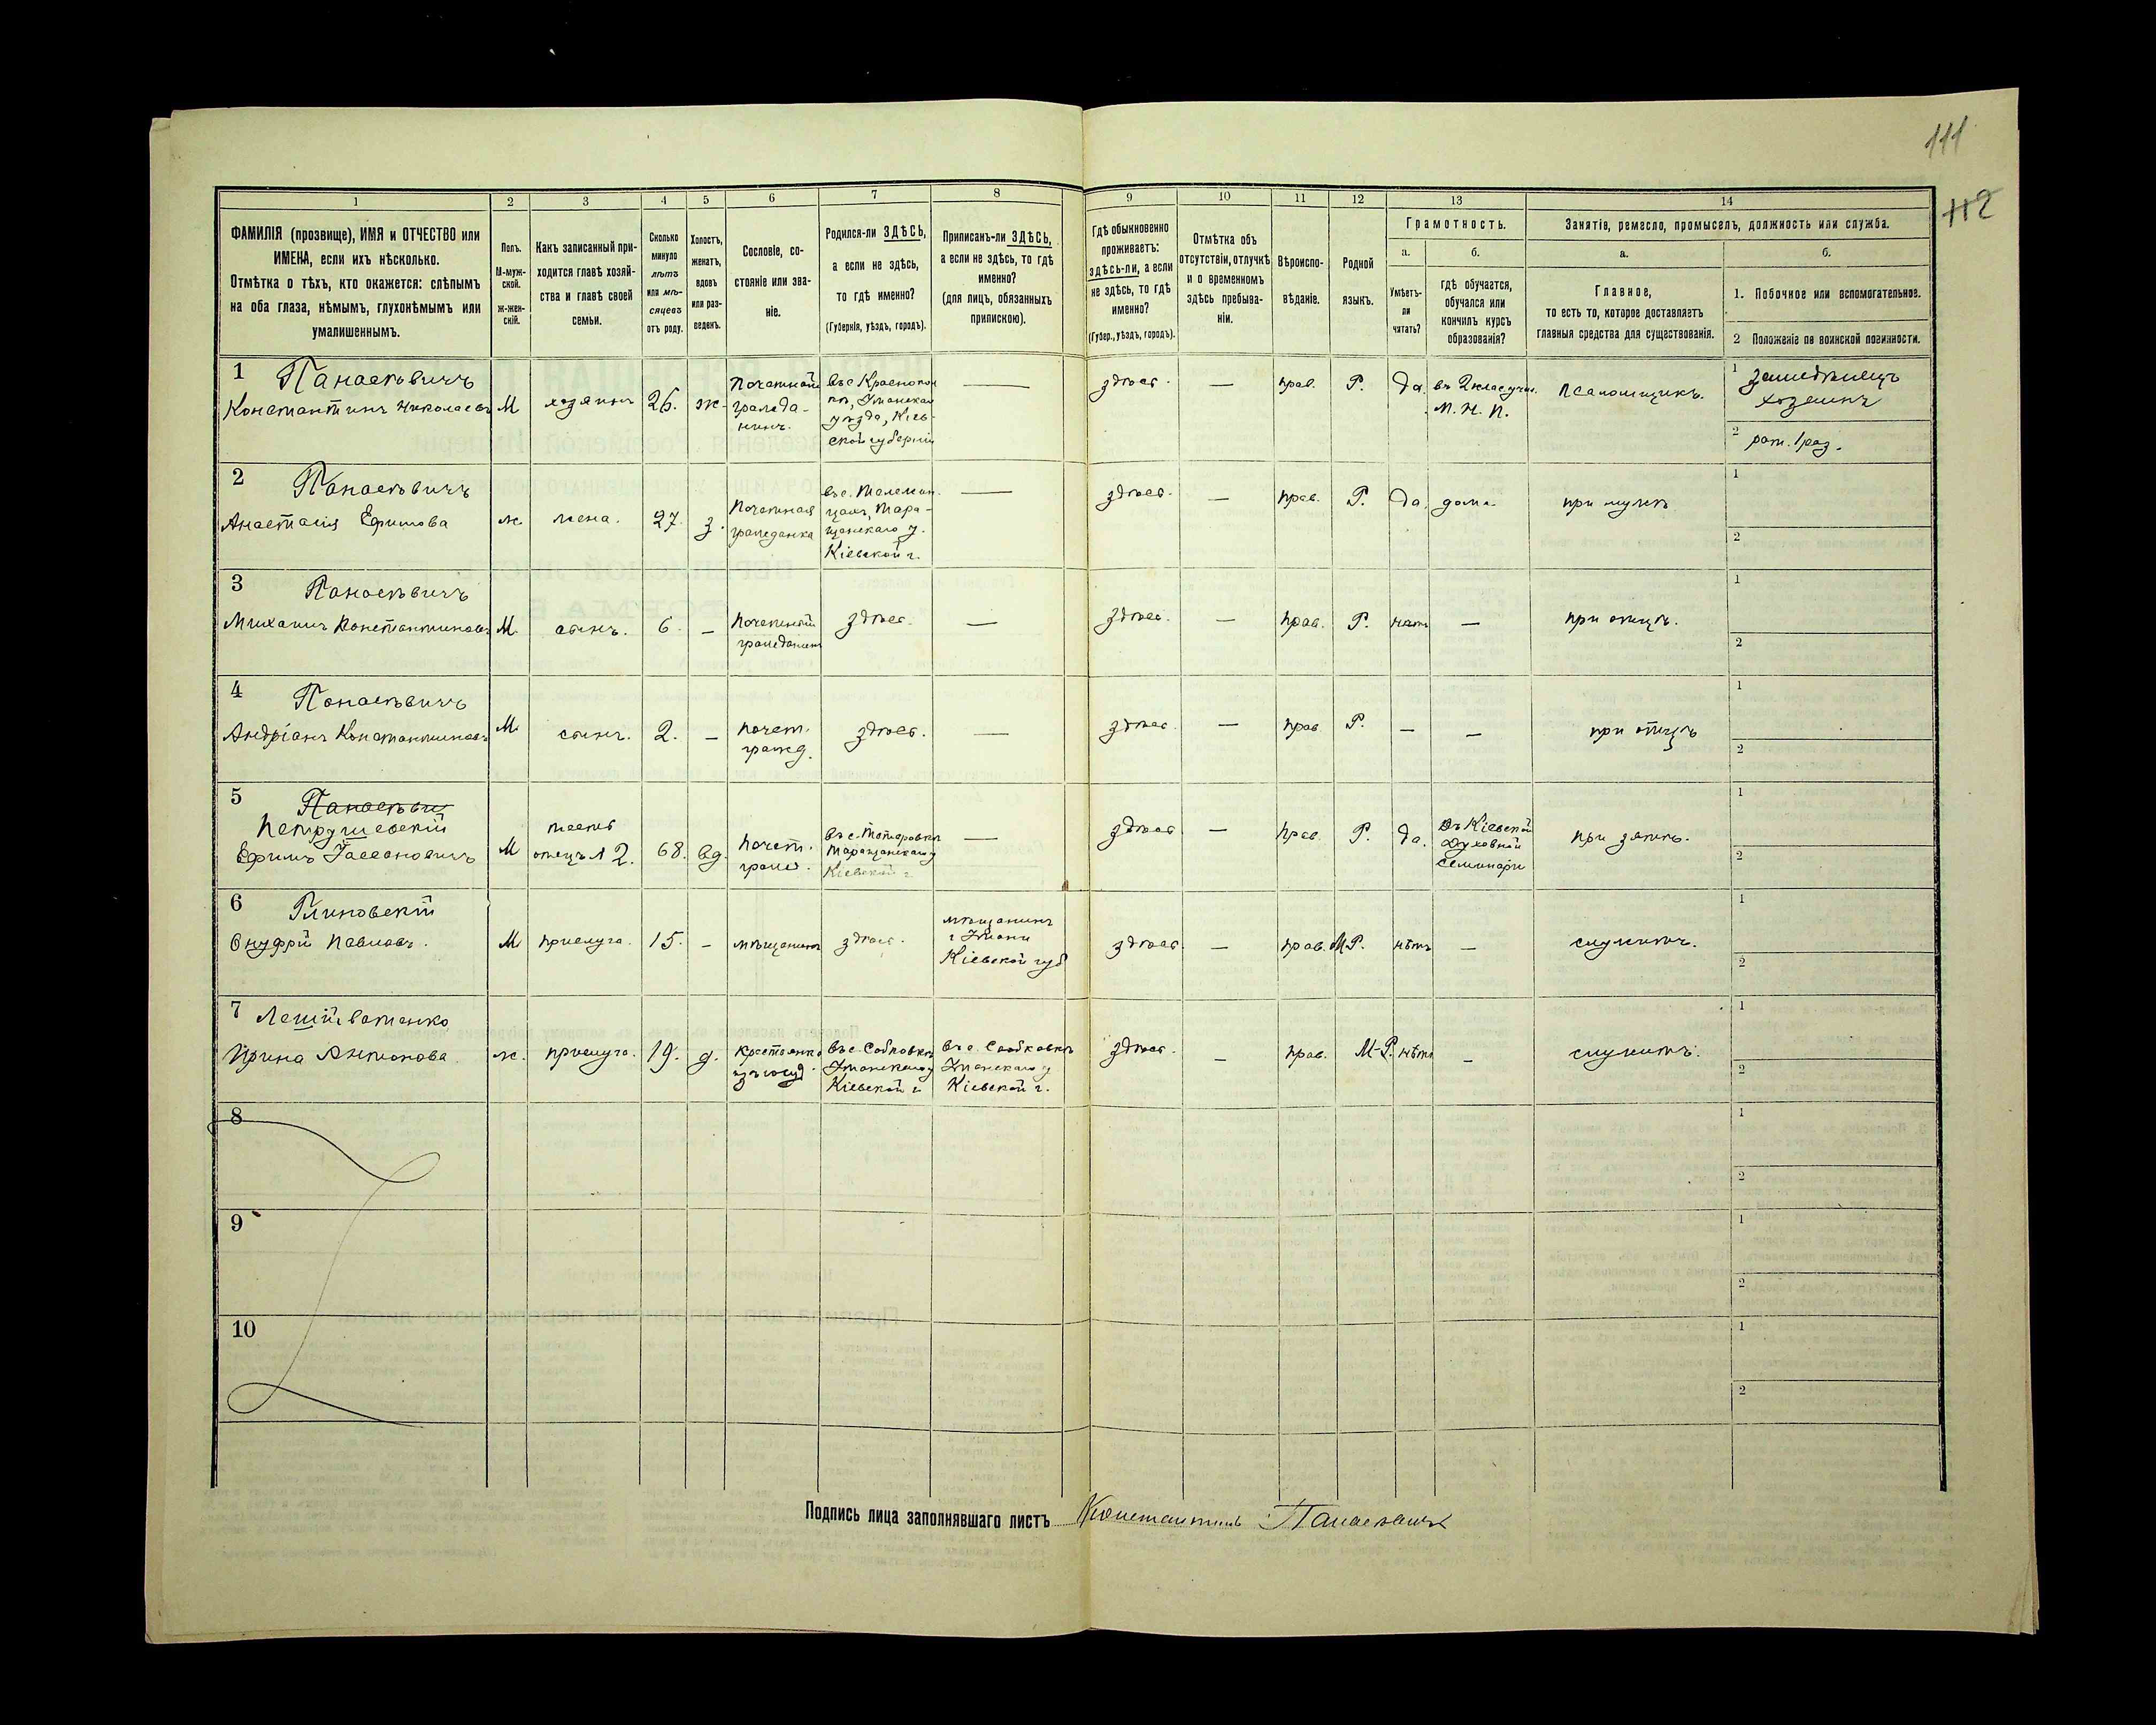 111
112
1 2 3 4 5 6 7 8 9 10 11 12 13 14
ФАМИЛІЯ (прозвище), ИМЯ и ОТЧЕСТВО или
ИМЕНА, если ихъ нѣсколько.
Отмѣтка о тѣхъ, кто окажется: слѣпымъ
на оба глаза, нѣмымъ, глухонѣмымъ или
умалишеннымъ.
Полъ.
М-муж-
ской.
ж-жен-
скій.
Какъ записанный при-
ходится главѣ хозяй-
ства и главѣ своей
семьи.
Сколько
минуло
лѣтъ
или мѣ-
сяцевъ
отъ роду.
Холостъ,
женатъ,
вдовъ
или раз-
веденъ.
Сословіе, со-
стояніе или зва-
ніе.
Родился-ли ЗДѢСЬ,
а если не здѣсь,
то гдѣ именно?
(Губернія, уѣздъ, городъ).
Приписанъ-ли ЗДѢСЬ,
а если не здѣсь, то гдѣ
именно?
(для лицъ, обязанныхъ
припискою).
Гдѣ обыкновенно
проживаетъ:
здѣсь-ли, а если
не здѣсь, то гдѣ
именно?
(Губер., уѣздъ, городъ).
Отмѣтка объ
отсутствіи, отлучкѣ
и о временномъ
здѣсь пребыва-
ніи.
Вѣроиспо-
вѣданіе.
Родной
языкъ.
Грамотность.
а.
Умѣетъ-
ли
читать?
б.
гдѣ обучается,
обучался или
кончилъ курсъ
образованія?
Занятіе, ремесло, промыселъ, должность или служба.
а.
Главное,
то есть то, которое доставляетъ
главныя средства для существованія.
б.
1. Побочное или вспомогательное.
2 Положеніе по воинской повинности.
1 Панасѣвичъ
Константинъ Николаевъ
М
хозяинъ
26.
ж.
Почетной
гражда-
нинъ.
въ с Краснопол
кѣ, Уманскаго
уѣзда, Кіев-
ской губерніи
—
здѣсь.
—
прав.
Р.
да.
въ 2 клас. учил.
М. Н. П.
Псаломщикъ.
1 земледѣлецъ
хозяинъ
2 рат. 1 раз.
2 Панасѣвичъ
Анастасія Ефимова
ж.
жена.
27.
з.
Почетная
гражданка
Тара-
щанскаго у.
Кіевской г.
—
здѣсь.
—
прав.
Р.
да.
дома
при мужѣ
1
2
3 Панасѣвичъ
Михаилъ Константиновъ
М.
сынъ.
6.
—
Почетный
гражданинъ
здѣсь.
—
здѣсь.
—
прав.
Р.
нѣтъ
—
при отцѣ.
1
2
4 Панасѣвичъ
Андріанъ Константиновъ
М.
сынъ.
2.
—
почет.
гражд.
здѣсь.
—
здѣсь.
—
прав
Р.
—
—
при отцѣ
1
2
5 Панасѣвич
Петрушевскій
Ефимъ
М
тесть
отецъ Л 2.
68.
вд.
Почет.
граж.
Таращанскаго у
Кіевской г
—
здѣсь
—
прав.
Р.
да.
Въ Кіевской
Духовной
семинаріи
при зятѣ.
1
2
6 Глиновскій
Онуфрій Павловъ.
М
прислуга.
15.
–
мѣщанинъ
здѣсь.
мѣщанинъ
г Умани
Кіевской губ
здѣсь.
—
прав.
МР.
нѣтъ
—
служитъ.
1
2
7
Ирина Антонова
ж.
прислуга.
19.
д.
Крестьянка
въ с. Собковкѣ
Уманскаго у
Кіевской г
въ с. Собковкѣ
Уманскаго у
Кіевской г.
здѣсь.
—
прав.
М-Р.
нѣтъ
–
служитъ.
1
2
8
1
2
9
1
2
10
1
2
Подпись лица заполнявшаго листъ Константинъ Панасѣвичъ